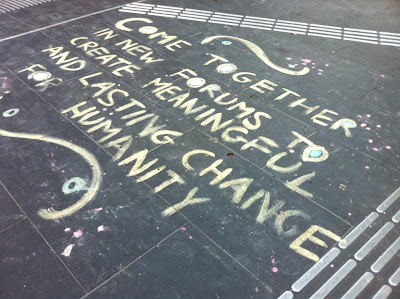 COME TOGETHER
IN NEW FORUMS TO
CREATE MEANINGFUL
AND LASTING CHANGE
FOR HUMANITY